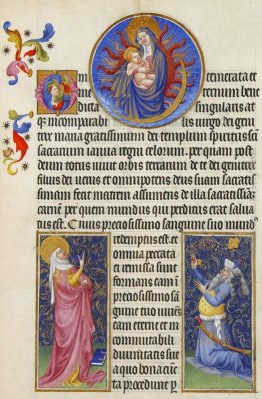 O in temerata et
eternum bene
dicta singularis at
q; incomparabilis uirgo dei geni
trix maria gratissimum dei templum spiritus sancti
sacrarium ianua regni celorum. per quam post
deum totus uiuit orbis terrarum de te dei genitrix
filius dei uerus et omnipotens deus suam sacratis
simam fecit matrem assumens de illa sacratissima
carne per quem mundus qui perditus erat salua
tus est. Cuius preciosissimo sanguine suo mund
redemptus est. et
omnia peccata
ei remissa sunt
preciosissimo san
guine suo
eam eterne et in
commutabili
diuinitatis sue
a quo bona cunc
ta procedunt p